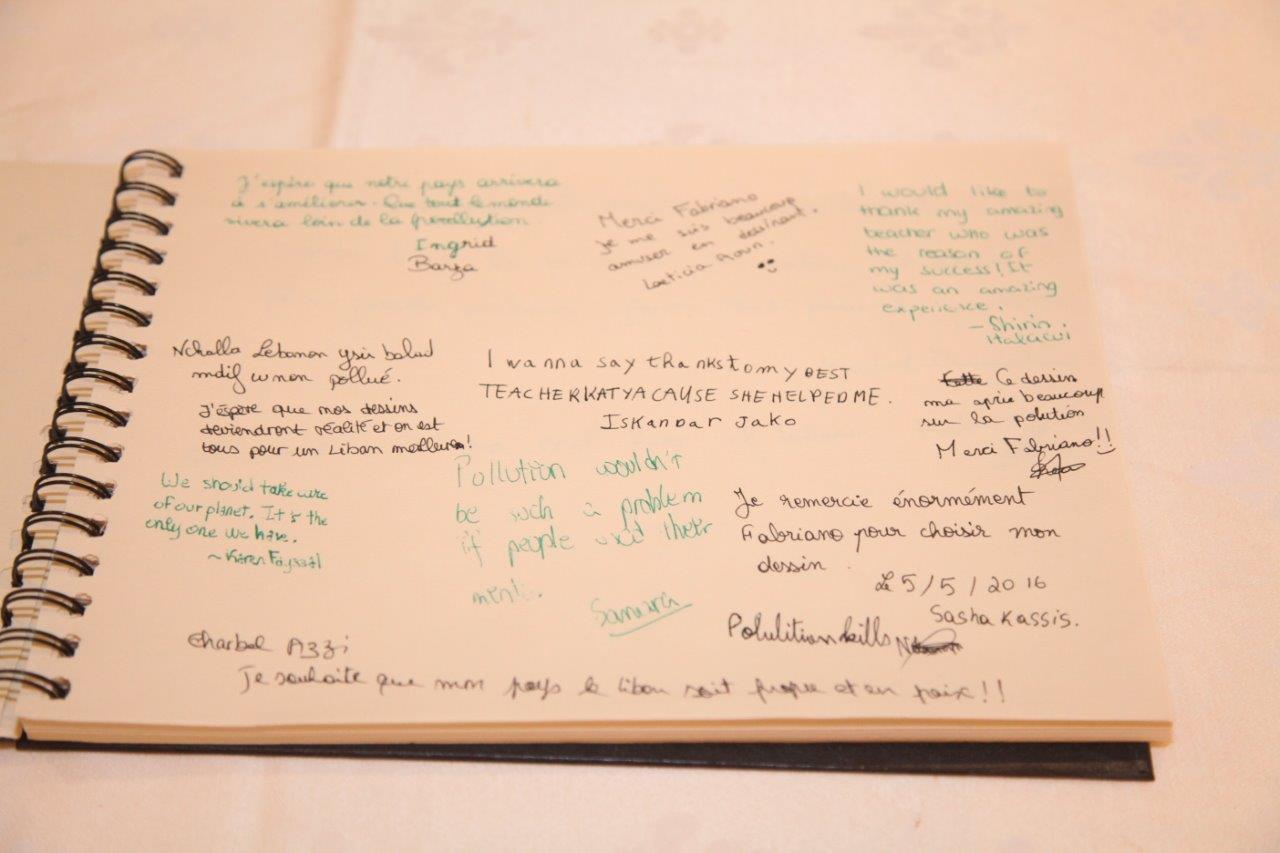 J'espère que notre pays arrivera
à s'améliorer. Que tout le monde
vivera loin de la
Ingrid
Barza
Merci Fabriano
je me suis beaucoup
amuser en dessinant.
Laeticia Aoun.
I would like to
thank my amazing
teacher who was
the reason of
my success! It
was an amazing
experience.
- Shirin
Nchalla Lebanon ysir balad
ndif w non pollué.
J'éspère que nos dessins
deviendront réalité et on est
tous pour un Liban meilleur!
I wanna say thanks to my BEST
TEACHER KATYA CAUSE SHE HELPED ME.
Iskandar Jako
Ce dessin
ma apris beaucoup
sur la polution
Merci Fabriano!!
We should take care
of our planet. It's the
only one we have.
~ Karen Fayssal
Pollution wouldn't
be such a problem
if people used their
Je remercie énormément
Fabriano pour choisir mon
dessin.
Le 5/5/2016
Sasha Kassis.
Polulition kills
Charbel Azzi
Je souhaite que mon pays le liban soit propre et en paix!!